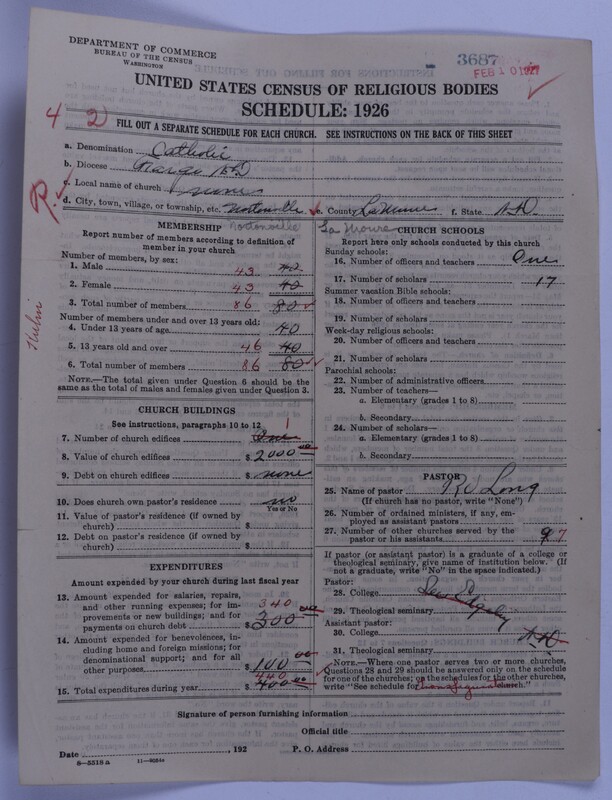 DEPARTMENT OF COMMERCE
BUREAU OF THE CENSUS
WASHINGTON
3687
FEB 10 1927
UNITED STATES CENSUS OF RELIGIOUS BODIES
SCHEDULE: 1926
4 2
FILL OUT A SEPARATE SCHEDULE FOR EACH CHURCH. SEE INSTRUCTIONS ON THE BACK OF THIS SHEET
a. Denomination Catholic
b. Diocese Fargo N D
c. Local name of church none
d. City, town, village, or township, etc. Nortonville e. County LaMoure f. State N.D.
R.
Kulm
MEMBERSHIP Nortonville
Report number of members according to definition of
member in your church
Number of members, by sex:
1. Male 43 40
2. Female 43 40
3. Total number of members 86 80
Number of members under and over 13 years old:
4. Under 13 years of age 40
5. 13 years old and over 46 40
6. Total number of members 86 80
NOTE.—The total given under Question 6 should be
same as the total of males and females given under Question 3.
CHURCH BUILDINGS
See instructions, paragraphs 10 to 12
7. Number of church edifices One 1
8. Value of church edifices $ 2000 00
9. Debt on church edifices $ none
10. Does church own pastor's residence no
Yes or No
11. Value of pastor's residence (if owned by
church) $
12. Debt on pastor's residence (if owned by
church) $
EXPENDITURES
Amount expended by your church during last fiscal year
13. Amount expended for salaries, repairs,
and other running expenses; for im-
provements or new buildings; and for
payments on church debt $ 340 300 00
14. Amount expended for benevolences, in-
cluding home and foreign missions; for
denominational support; and for all
other purposes $ 100 00
15. Total expenditures during year $ 440 400 00
La Moure CHURCH SCHOOLS
Report here only schools conducted by this church
Sunday schools:
16. Number of officers and teachers One
17. Number of scholars 17
Summer vacation Bible schools:
18. Number of officers and teachers
19. Number of scholars
Week-day religious schools:
20. Number of officers and teachers
21. Number of scholars
Parochial schools:
22. Number of administrative officers
23. Number of teachers—
a. Elementary (grades 1 to 8)
b. Secondary
24. Number of scholars—
a. Elementary (grades 1 to 8)
b. Secondary
PASTOR
25. Name of pastor R V Long
(If church has no pastor, write "None")
26. Number of ordained ministers, if any, em-
ployed as assistant pastors
27. Number of other churches served by the
pastor or his assistants 9 7
If pastor (or assistant pastor) is a graduate of a college or
theological seminary, give name of institution below. (If
not a graduate, write "No" in the space indicated.)
Pastor:
28. College
29. Theological seminary
Assistant pastor:
30. College N.D.
31. Theological seminary
NOTE.—Where one pastor serves two or more churches,
Questions 28 and 29 should be answered only on the schedule
for one of the churches; on the schedules for the other churches,
write "See schedule for church."
Signature of person furnishing information
Official title
Date , 192 P. O. Address
8—5518 a 11—9064a